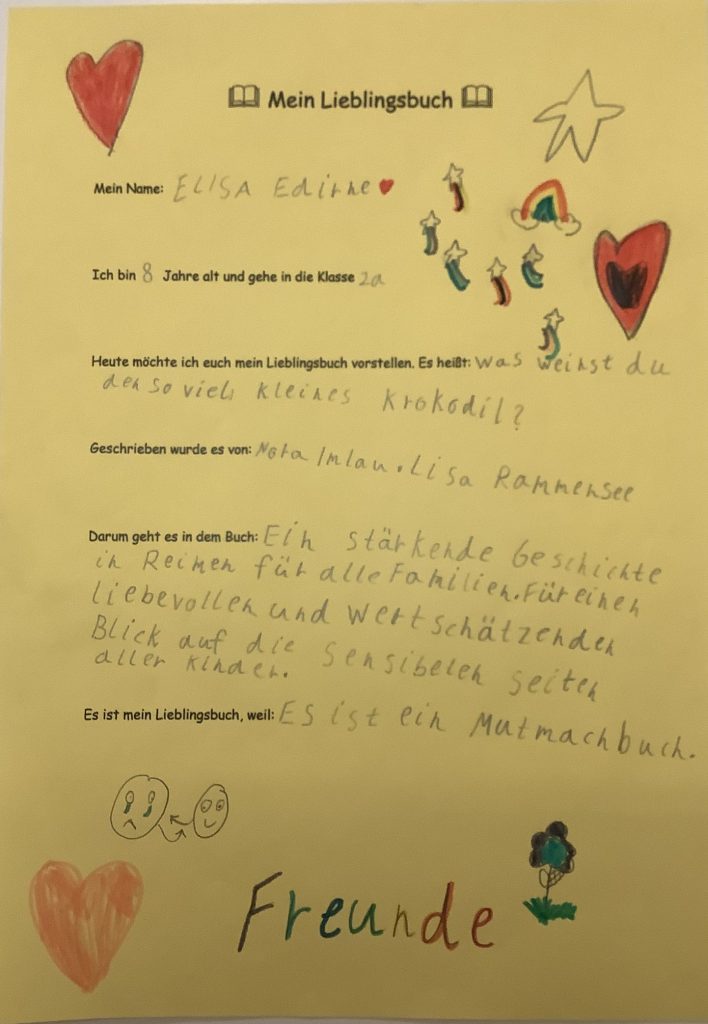 Mein Lieblingsbuch
Mein Name: ELISA Edirne
Ich bin 8 Jahre alt und gehe in die Klasse 2a
Heute möchte ich euch mein Lieblingsbuch vorstellen. Es heißt: was weinst du
den so viel, kleines Krokodil?
Geschrieben wurde es von: Nora Imlau. Lisa Rammensee
Darum geht es in dem Buch: Ein stärkende Geschichte
in Reimen für alle Familien. Für einen
liebevollen und wertschätzenden
Blick auf die sensibelen seiten
aller Kinder.
Es ist mein Lieblingsbuch, weil: ES ist ein Mutmachbuch.
Freunde